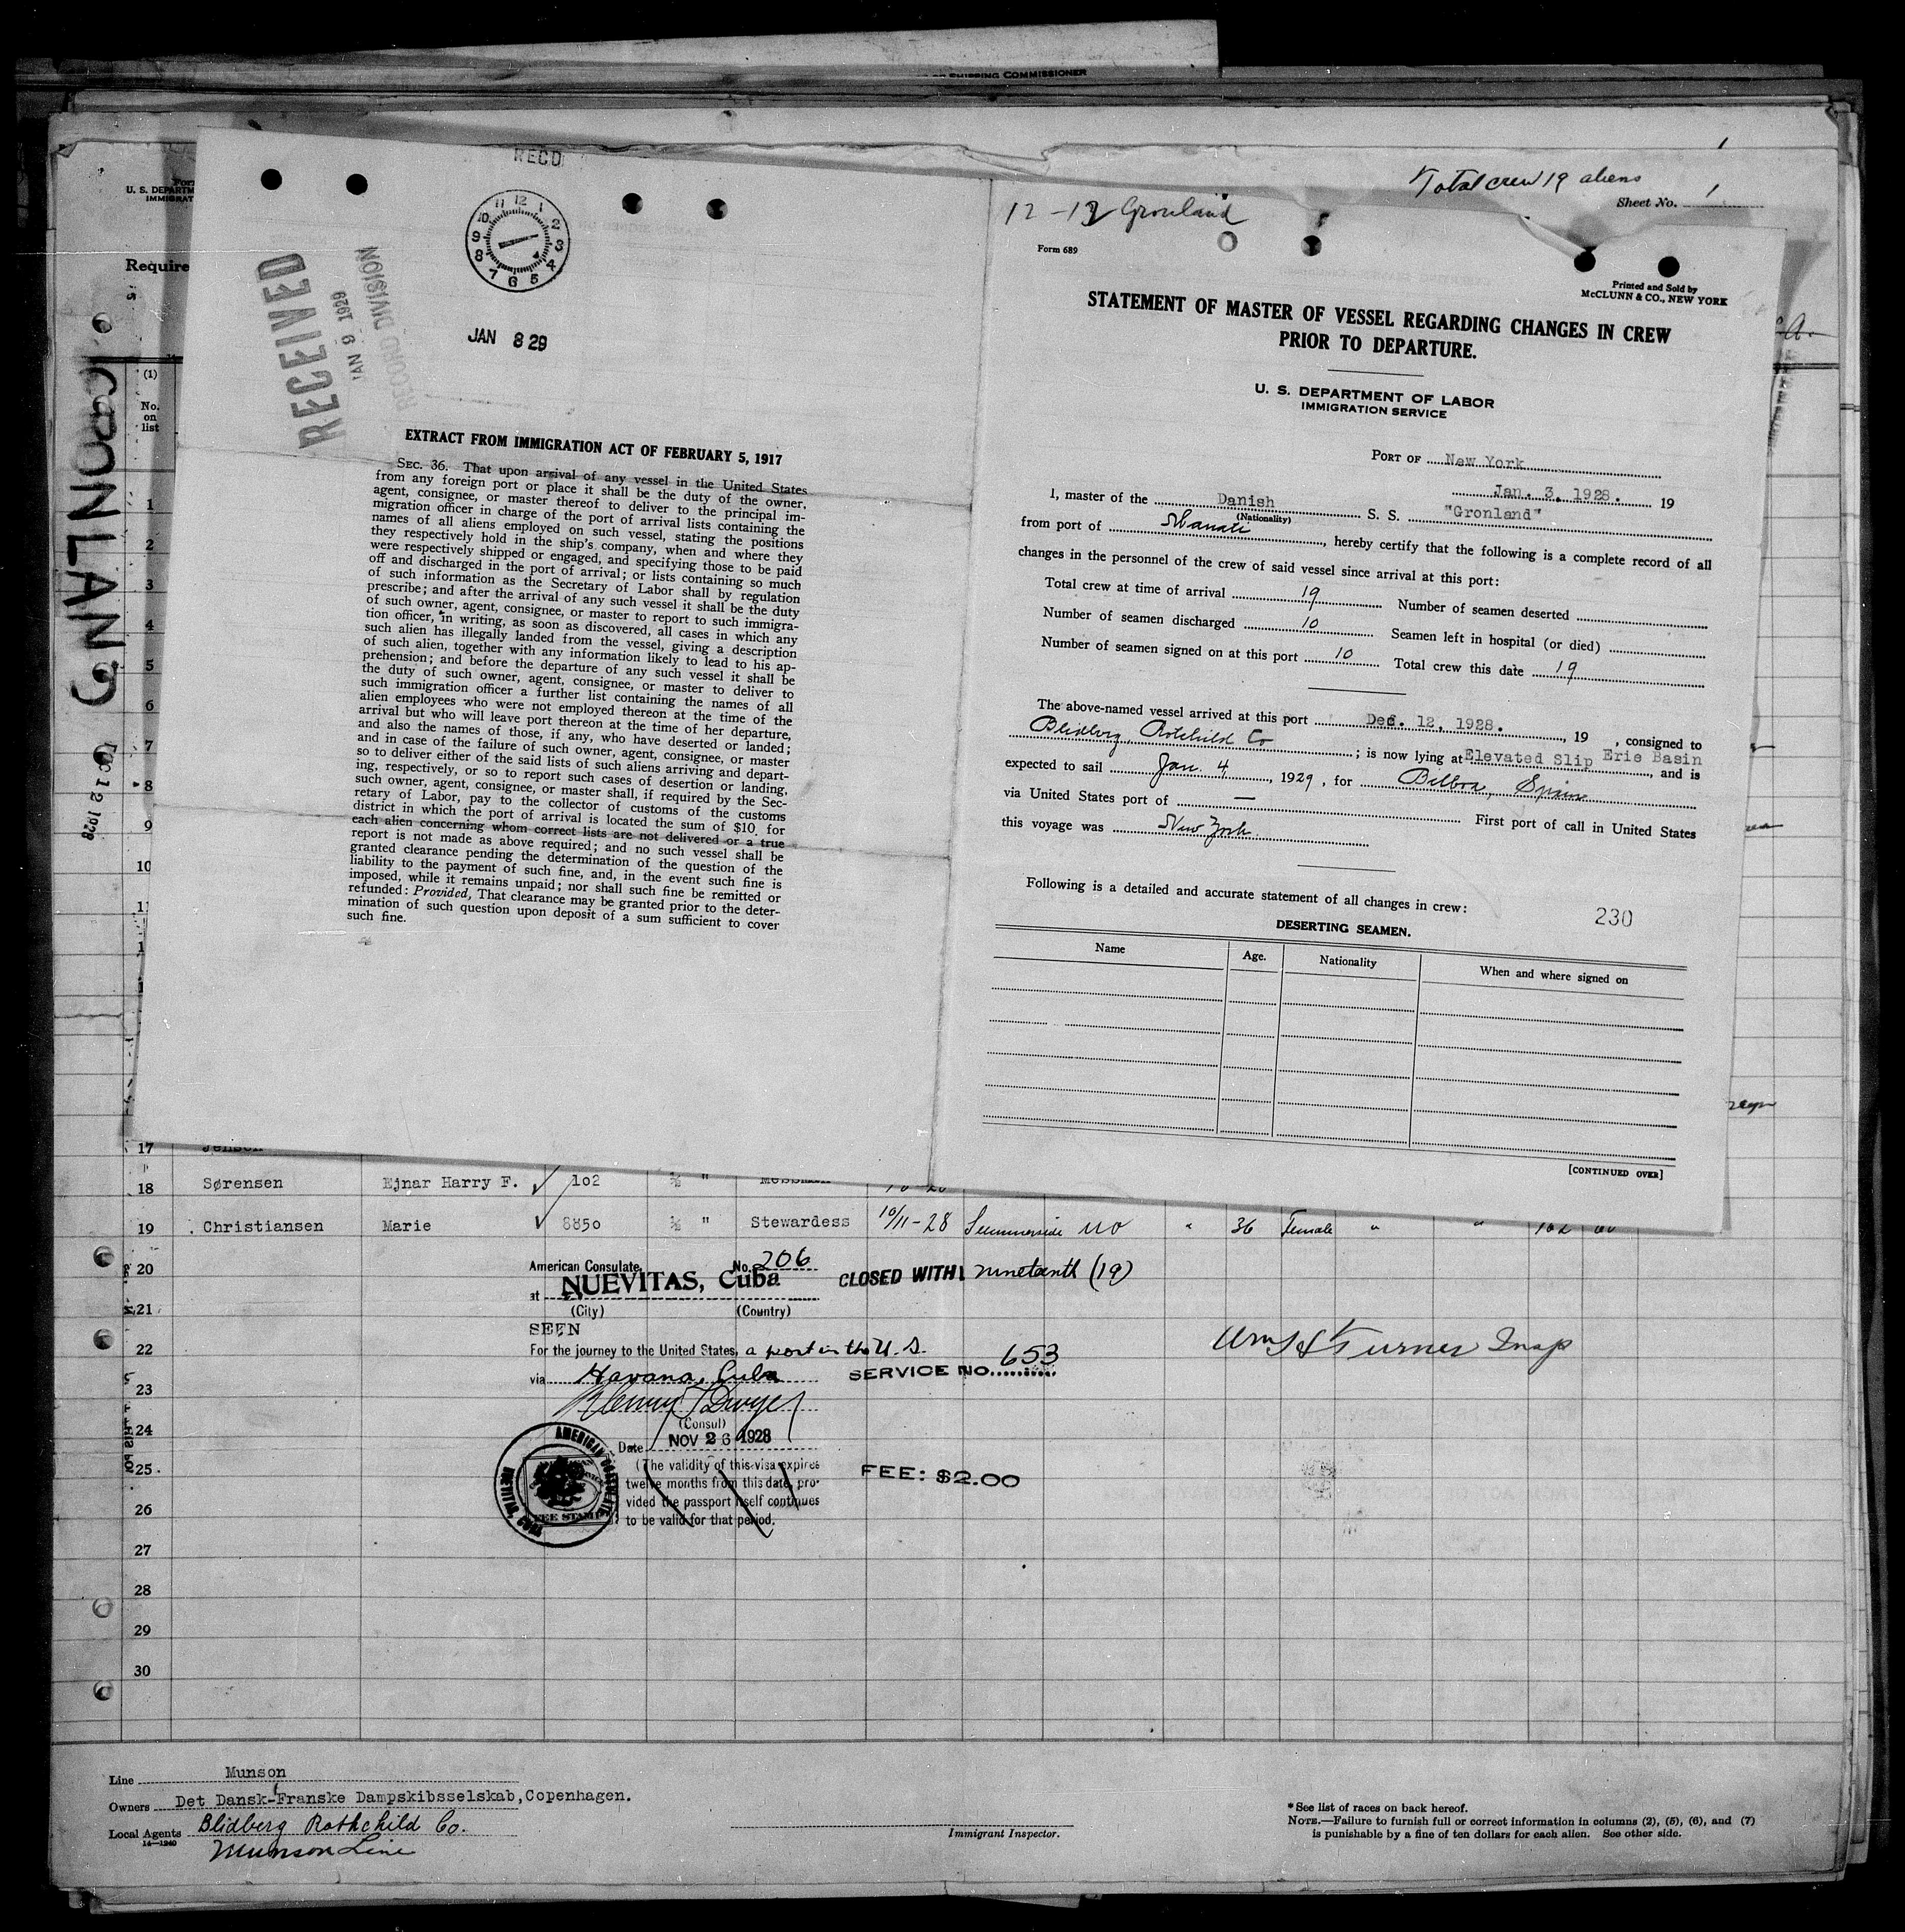 OF SHIPPING COMMISSIONER
Total crew 19 aliens
Sheet No. 1
U. S. DEPARTM
IMMIGRAT
Require
(1)
No.
on
list
GRONLAND
DEC 12 1928
RECD
12 1 2 3 4 5 6 7 8 9 10 11
JAN 8 29
RECEIVED
JAN 9 1929
RECORD DIVISION
EXTRACT FROM IMMIGRATION ACT OF FEBRUARY 5, 1917
SEC. 36. That upon arrival of any vessel in the United States
from any foreign port or place it shall be the duty of the owner,
agent, consignee, or master thereof to deliver to the principal im-
migration officer in charge of the port of arrival lists containing the
names of all aliens employed on such vessel, stating the positions
they respectively hold in the ship's company, when and where they
were respectively shipped or engaged, and specifying those to be paid
off and discharged in the port of arrival; or lists containing so much
of such information as the Secretary of Labor shall by regulation
prescribe; and after the arrival of any such vessel it shall be the duty
of such owner, agent, consignee, or master to report to such immigra-
tion officer, in writing, as soon as discovered, all cases in which any
such alien has illegally landed from the vessel, giving a description
of such alien, together with any information likely to lead to his ap-
prehension; and before the departure of any such vessel it shall be
the duty of such owner, agent, consignee, or master to deliver to
such immigration officer a further list containing the names of all
alien employees who were not employed thereon at the time of the
arrival but who will leave port thereon at the time of her departure,
and also the names of those, if any, who have deserted or landed;
and in case of the failure of such owner, agent, consignee, or master
so to deliver either of the said lists of such aliens arriving and depart-
ing, respectively, or so to report such cases of desertion or landing,
such owner, agent, consignee, or master shall, if required by the Sec-
retary of Labor, pay to the collector of customs of the customs
district in which the port of arrival is located the sum of $10 for
each alien concerning whom correct lists are not delivered or a true
report is not made as above required; and no such vessel shall be
granted clearance pending the determination of the question of the
liability to the payment of such fine, and, in the event such fine is
imposed, while it remains unpaid; nor shall such fine be remitted or
refunded: Provided, That clearance may be granted prior to the deter-
mination of such question upon deposit of a sum sufficient to cover
such fine.
12 - 12 Gronland
Form 689
Printed and Sold by
McCLUNN & CO., NEW YORK
STATEMENT OF MASTER OF VESSEL REGARDING CHANGES IN CREW
PRIOR TO DEPARTURE.
U. S. DEPARTMENT OF LABOR
IMMIGRATION SERVICE
PORT OF New York
Jan. 3, 1928. 19
I, master of the Danish S. S. "Gronland"
(Nationality)
from port of Manati, hereby certify that the following is a complete record of all
changes in the personnel of the crew of said vessel since arrival at this port:
Total crew at time of arrival 19 Number of seamen deserted
Number of seamen discharged 10 Seamen left in hospital (or died)
Number of seamen signed on at this port 10 Total crew this date 19
The above-named vessel arrived at this port Dec. 12, 1928., 19 , consigned to
Blidberg, Rothchild Co; is now lying at Elevated Slip Erie Basin, and is
expected to sail Jan. 4, 1929, for Bilboa, Spain
via United States port of — First port of call in United States
this voyage was New York
Following is a detailed and accurate statement of all changes in crew:
230
DESERTING SEAMEN.
Name Age. Nationality When and where signed on
[CONTINUED OVER]
1
2
3
4
5
6
7
8
9
10
11
17 Jensen
18 Sørensen Ejnar Harry F. 102 ½ " Messman
19 Christiansen Marie 8850 ½ " Stewardess 10/11-28 Summerside no " 36 Female " " 162 60
20
21
22
23
24
25
26
27
28
29
30
American Consulate, No. 206
at NUEVITAS, Cuba
(City) (Country)
CLOSED WITH nineteenth (19)
SEEN
For the journey to the United States, a port in the U. S.
via Havana, Cuba
SERVICE NO. 653
Wm H Turner Insp
(Consul)
Date NOV 26 1928
(The validity of this visa expires
twelve months from this date, pro-
vided the passport itself continues
to be valid for that period.
FEE: $2.00
AMERICAN CONSULATE
NUEVITAS, CUBA
FEE STAMP
Line Munson
Owners Det Dansk-Franske Dampskibsselskab, Copenhagen.
Local Agents Blidberg Rothchild Co.
14—1240
Munson Line
Immigrant Inspector.
* See list of races on back hereof.
NOTE.—Failure to furnish full or correct information in columns (2), (5), (6), and (7)
is punishable by a fine of ten dollars for each alien. See other side.